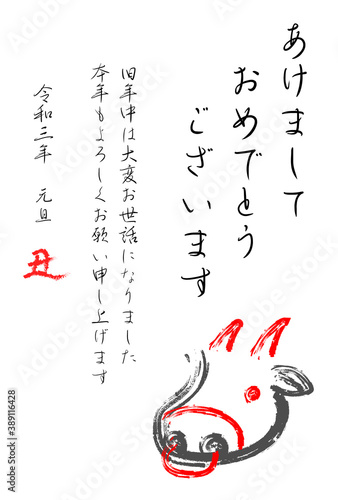 あけまして
おめでとう
ございます
旧年中は大変お世話になりました
本年もよろしくお願い申し上げます
令和三年 元旦
丑
Adobe Stock | #389116428